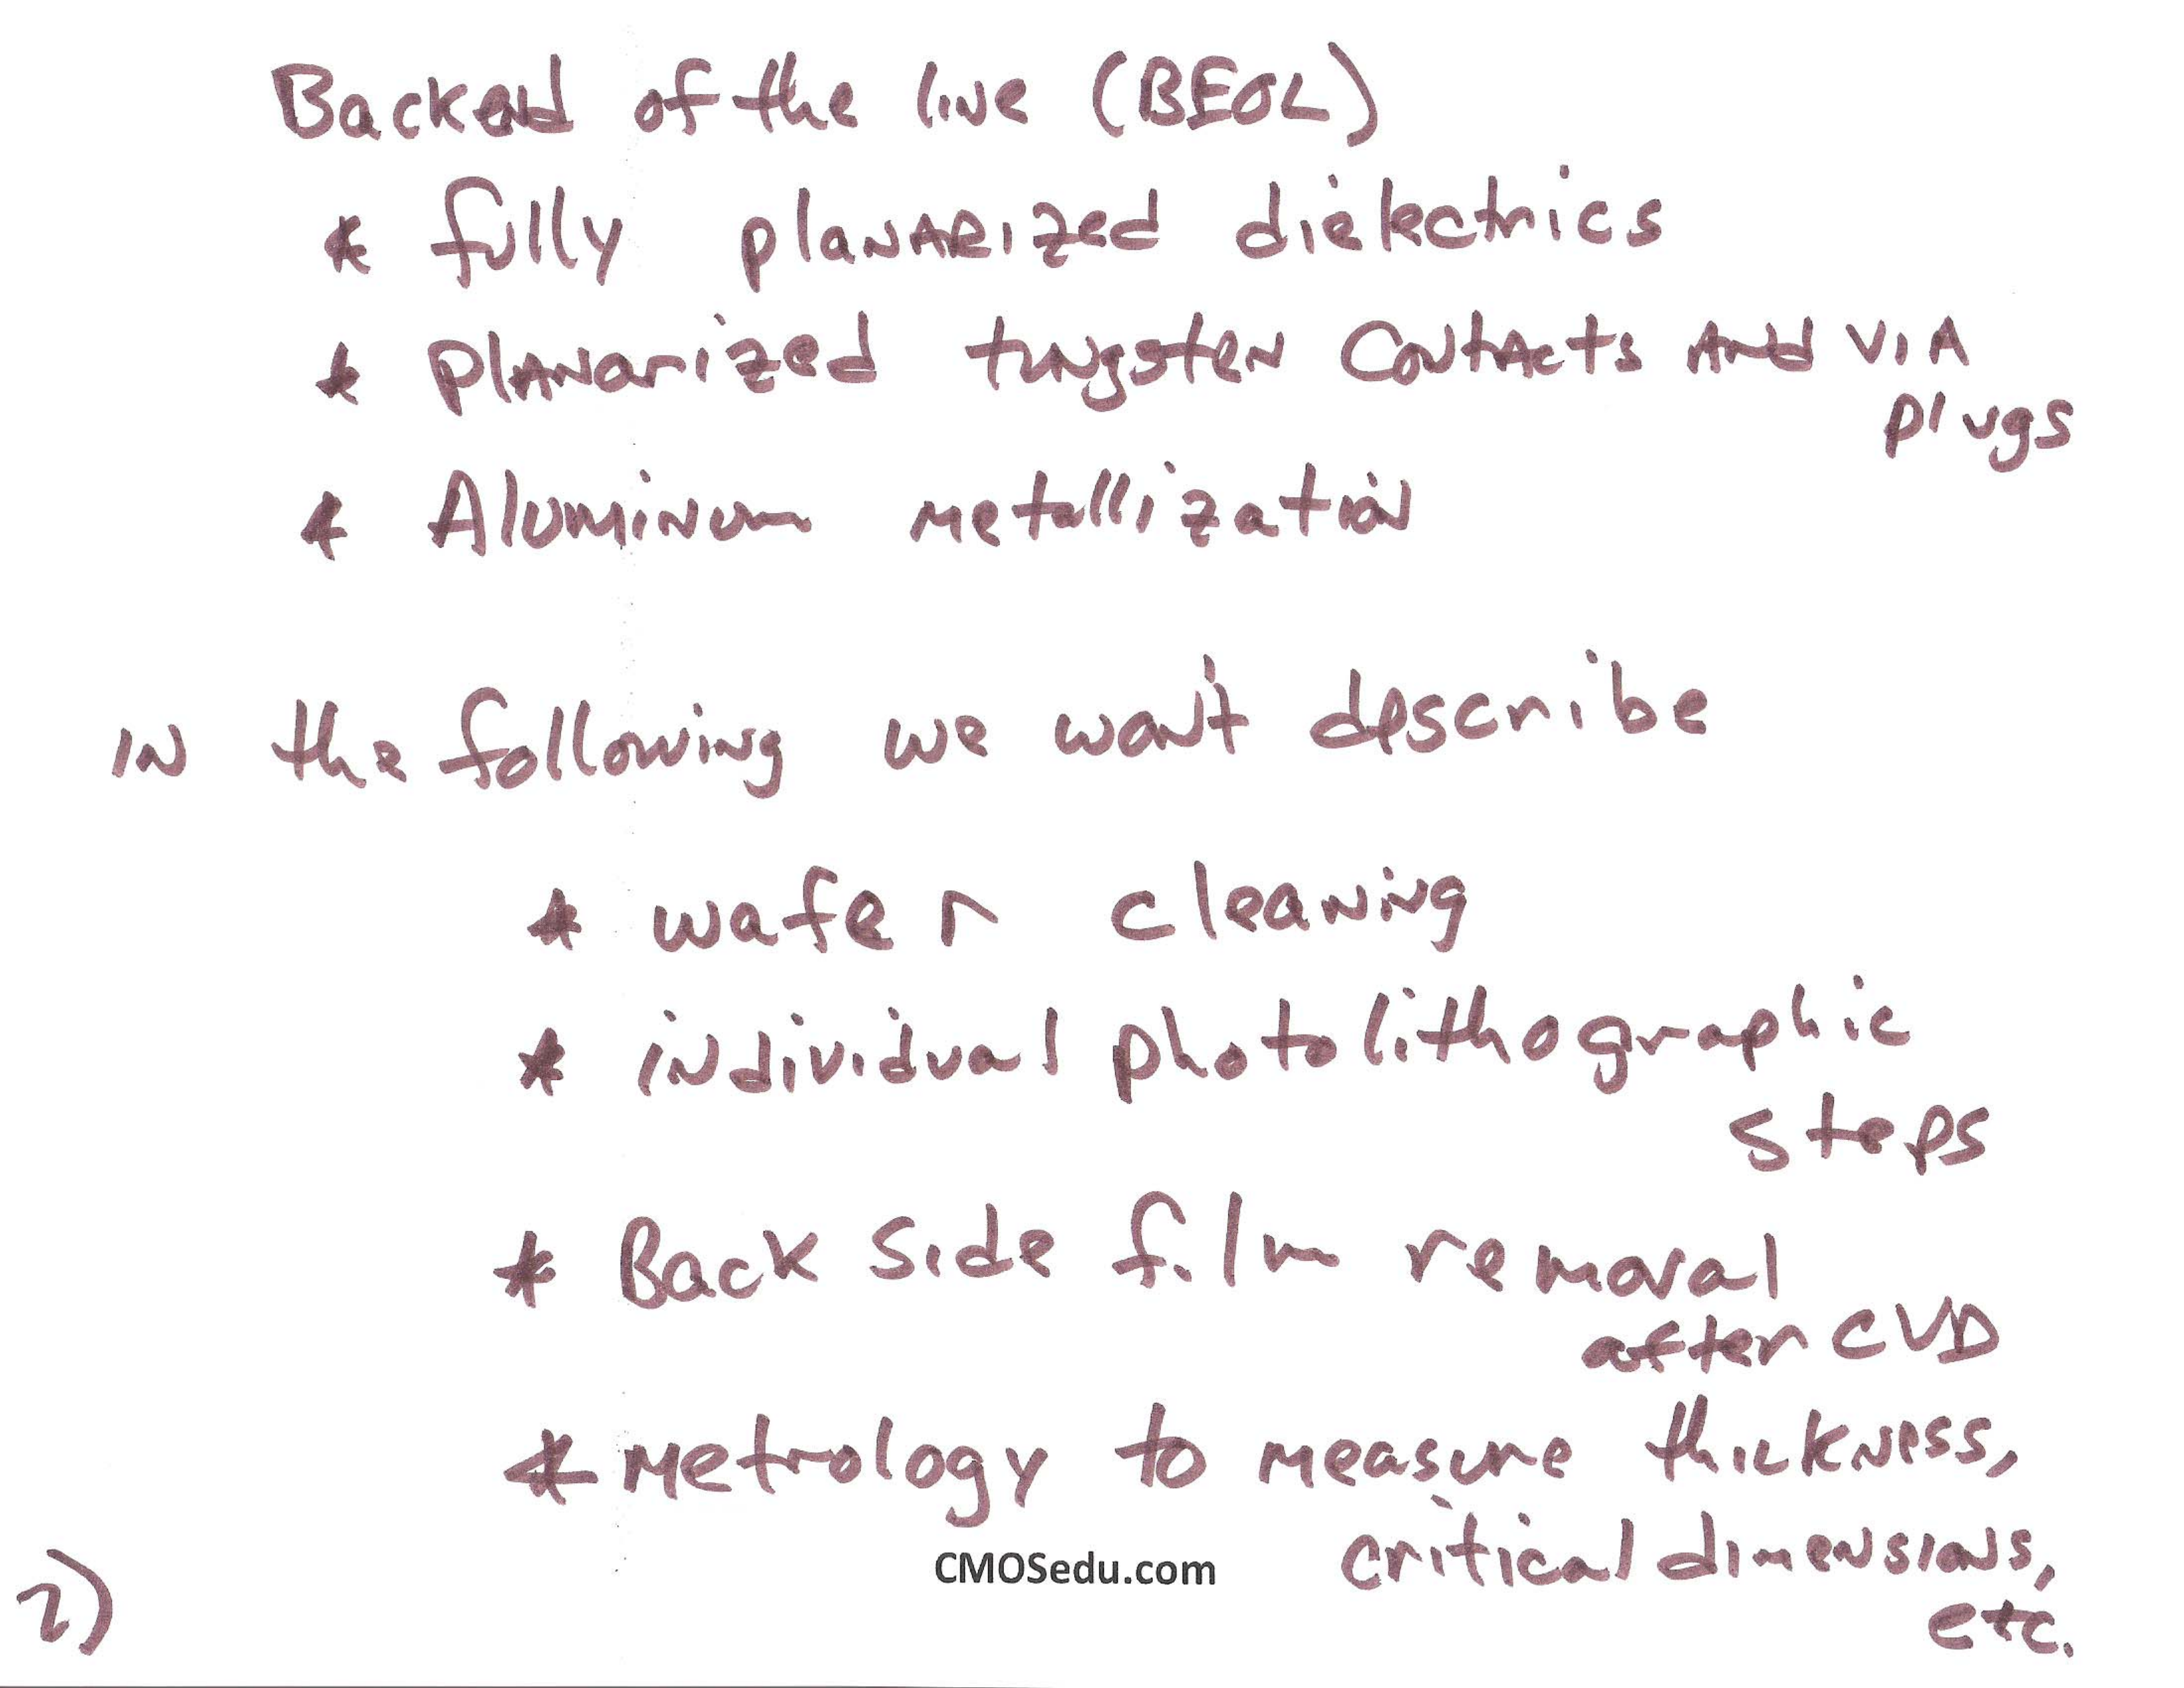 Backend of the line (BEOL)
* fully planarized dielectrics
* planarized tungsten contacts and via
plugs
* Aluminum metallization
in the following we won't describe
* wafer cleaning
* individual photolithographic
steps
* Back side film removal
after CVD
* metrology to measure thickness,
critical dimensions,
etc.
CMOSedu.com
2)